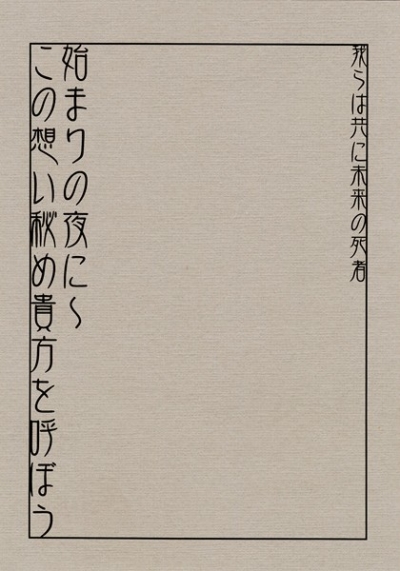 我らは共に未来の死者
始まりの夜に〜
この想い秘め貴方を呼ぼう